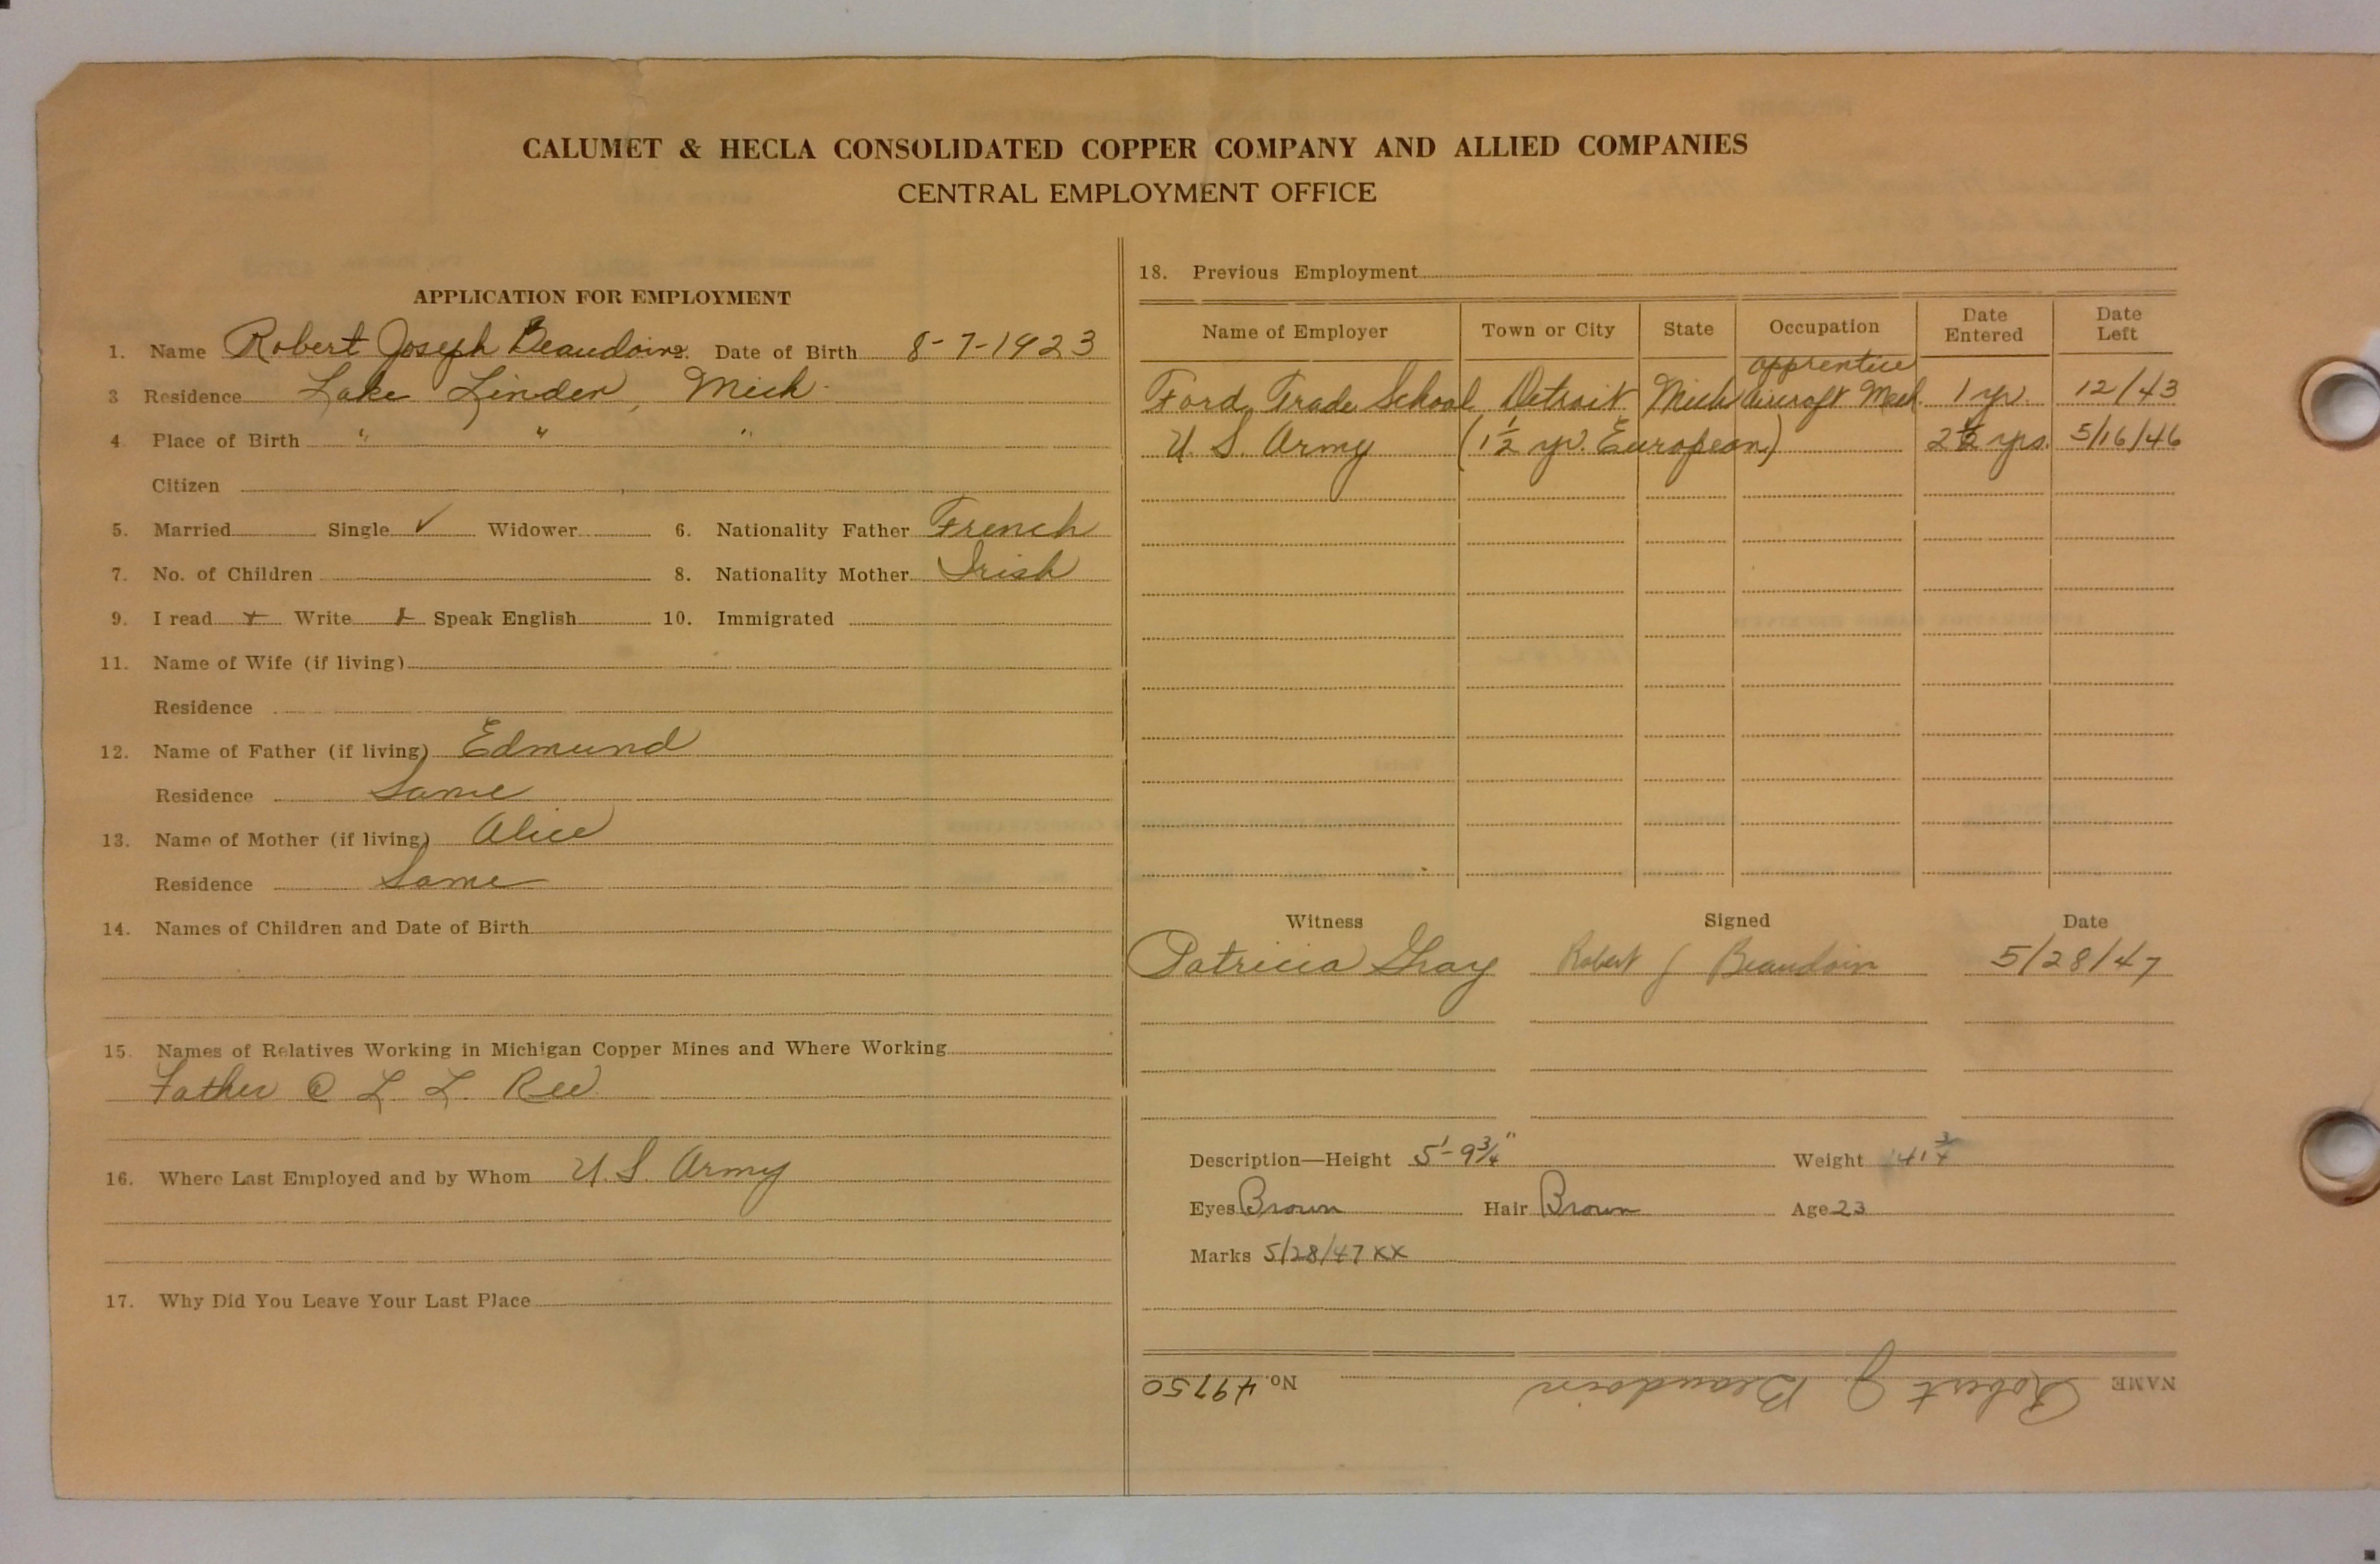 CALUMET & HECLA CONSOLIDATED COPPER COMPANY AND ALLIED COMPANIES
CENTRAL EMPLOYMENT OFFICE
APPLICATION FOR EMPLOYMENT
1. Name Robert Joseph Beaudoin 2. Date of Birth 8-7-1923
3 Residence Lake Linden, Mich.
4. Place of Birth " " "
Citizen
5. Married Single ✓ Widower 6. Nationality Father French
7. No. of Children 8. Nationality Mother Irish
9. I read + Write + Speak English 10. Immigrated
11. Name of Wife (if living)
Residence
12. Name of Father (if living) Edmund
Residence Same
13. Name of Mother (if living) Alice
Residence Same
14. Names of Children and Date of Birth
15. Names of Relatives Working in Michigan Copper Mines and Where Working
Father @ L. L. Rec.
16. Where Last Employed and by Whom U.S. Army
17. Why Did You Leave Your Last Place
18. Previous Employment
Name of Employer Town or City State Occupation Date Entered Date Left
apprentice
Ford Trade School Detroit Mich Aircraft Mech. 1 yr. 12/43
U. S. Army (1½ yr. European) 2½ yrs. 5/16/46
Witness Signed Date
Patricia Gray Robert J Beaudoin 5/28/47
Description—Height 5'-9¾" Weight 141¾
Eyes Brown Hair Brown Age 23
Marks 5/28/47 xx
NAME Robert J. Beaudoin No. 49750